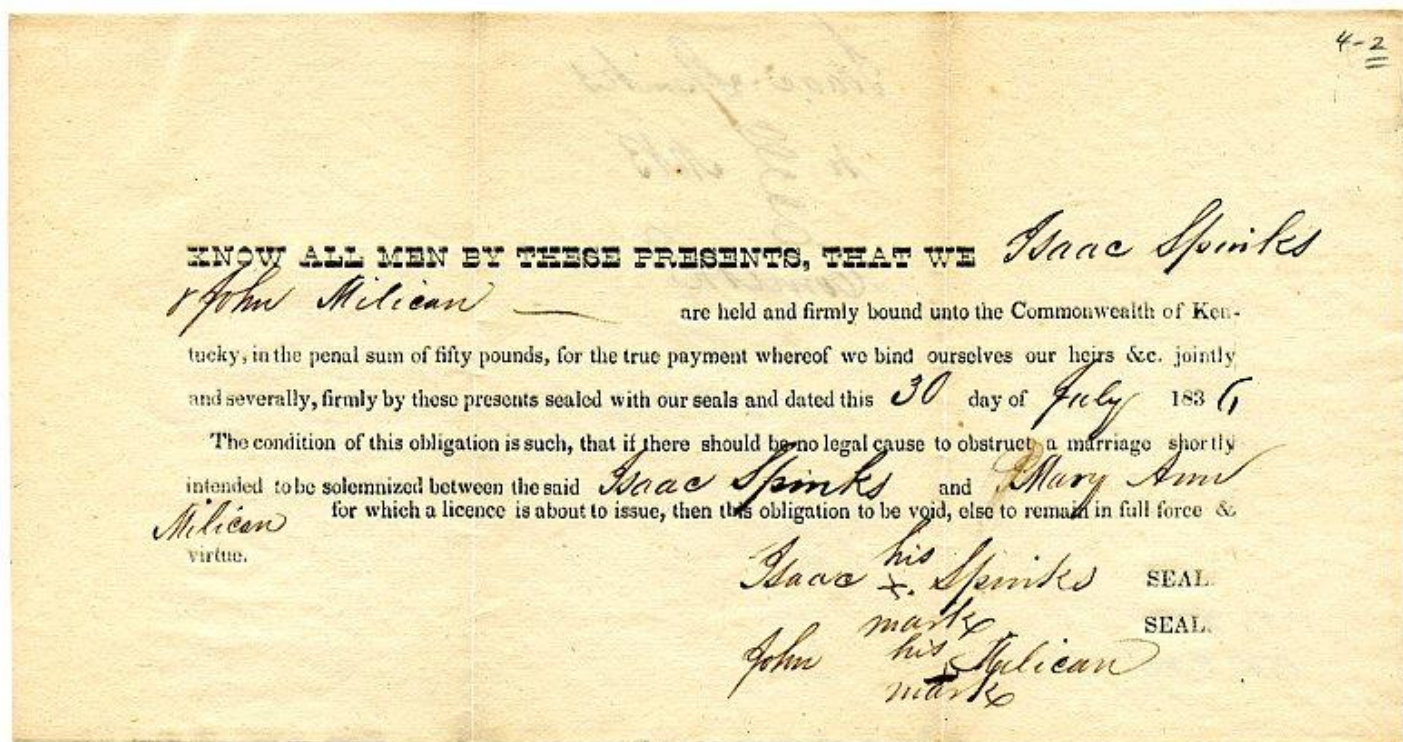 4-2
KNOW ALL MEN BY THESE PRESENTS, THAT WE Isaac Spinks
& John Milican — are held and firmly bound unto the Commonwealth of Ken-
tucky, in the penal sum of fifty pounds, for the true payment whereof we bind ourselves our heirs &c. jointly
and severally, firmly by these presents sealed with our seals and dated this 30 day of July 1836
The condition of this obligation is such, that if there should be no legal cause to obstruct a marriage shortly
intended to be solemnized between the said Isaac Spinks and Mary Ann
Milican for which a licence is about to issue, then this obligation to be void, else to remain in full force &
virtue.
his
Isaac x. Spinks SEAL.
mark SEAL.
his
John x Milican
mark